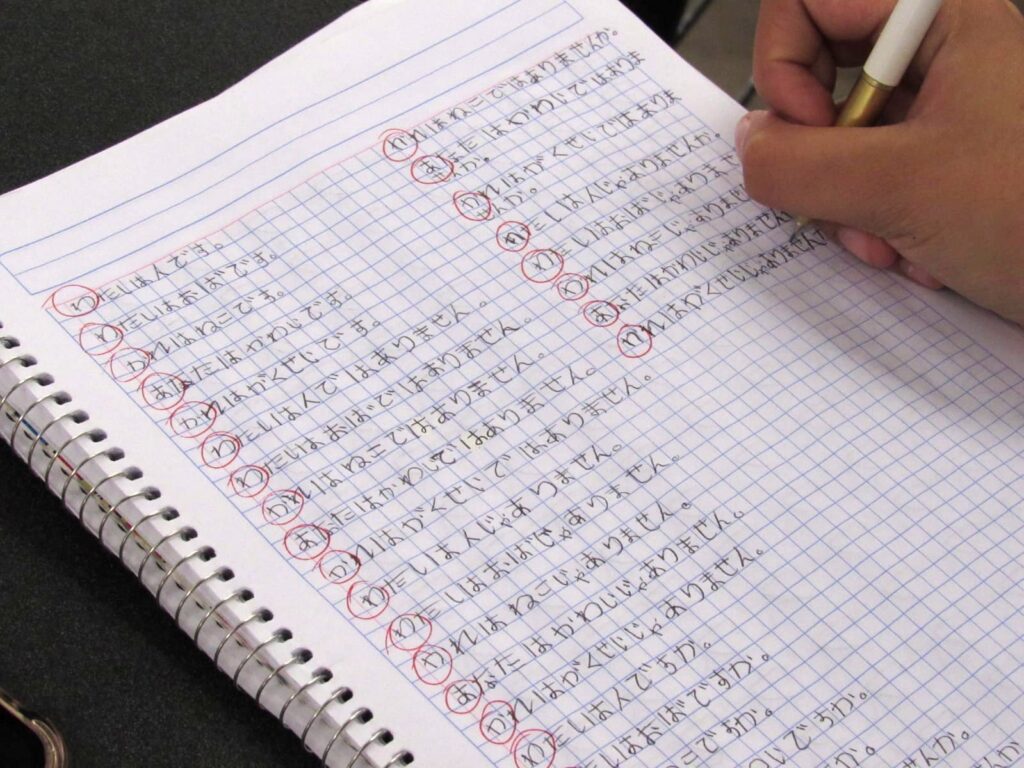 わたしは人です。
わたしはおばです。
かれはねこです。
あなたはかわいです。
かれはがくせいです。
わたしは人ではありません。
わたしはおばではありません。
かれはねこではありません。
あなたはかわいではありません。
かれはがくせいではありません。
わたしは人じゃありません。
わたしはおばじゃありません。
かれはねこじゃありません。
あなたはかわいいじゃありません。
かれはがくせいじゃありません。
わたしは人ですか。
たしはおばですか。
こですか。
ですか。
か。
せんか。
かれはねこではありませんか。
あなたはかわいではありま
か。
かれはがくせいではありま
んか。
わたしは人じゃありませんか。
わたしはおばじゃありま
かれはねこじゃありま
あなたはかわいじゃありません
かれはがくせいじゃありません